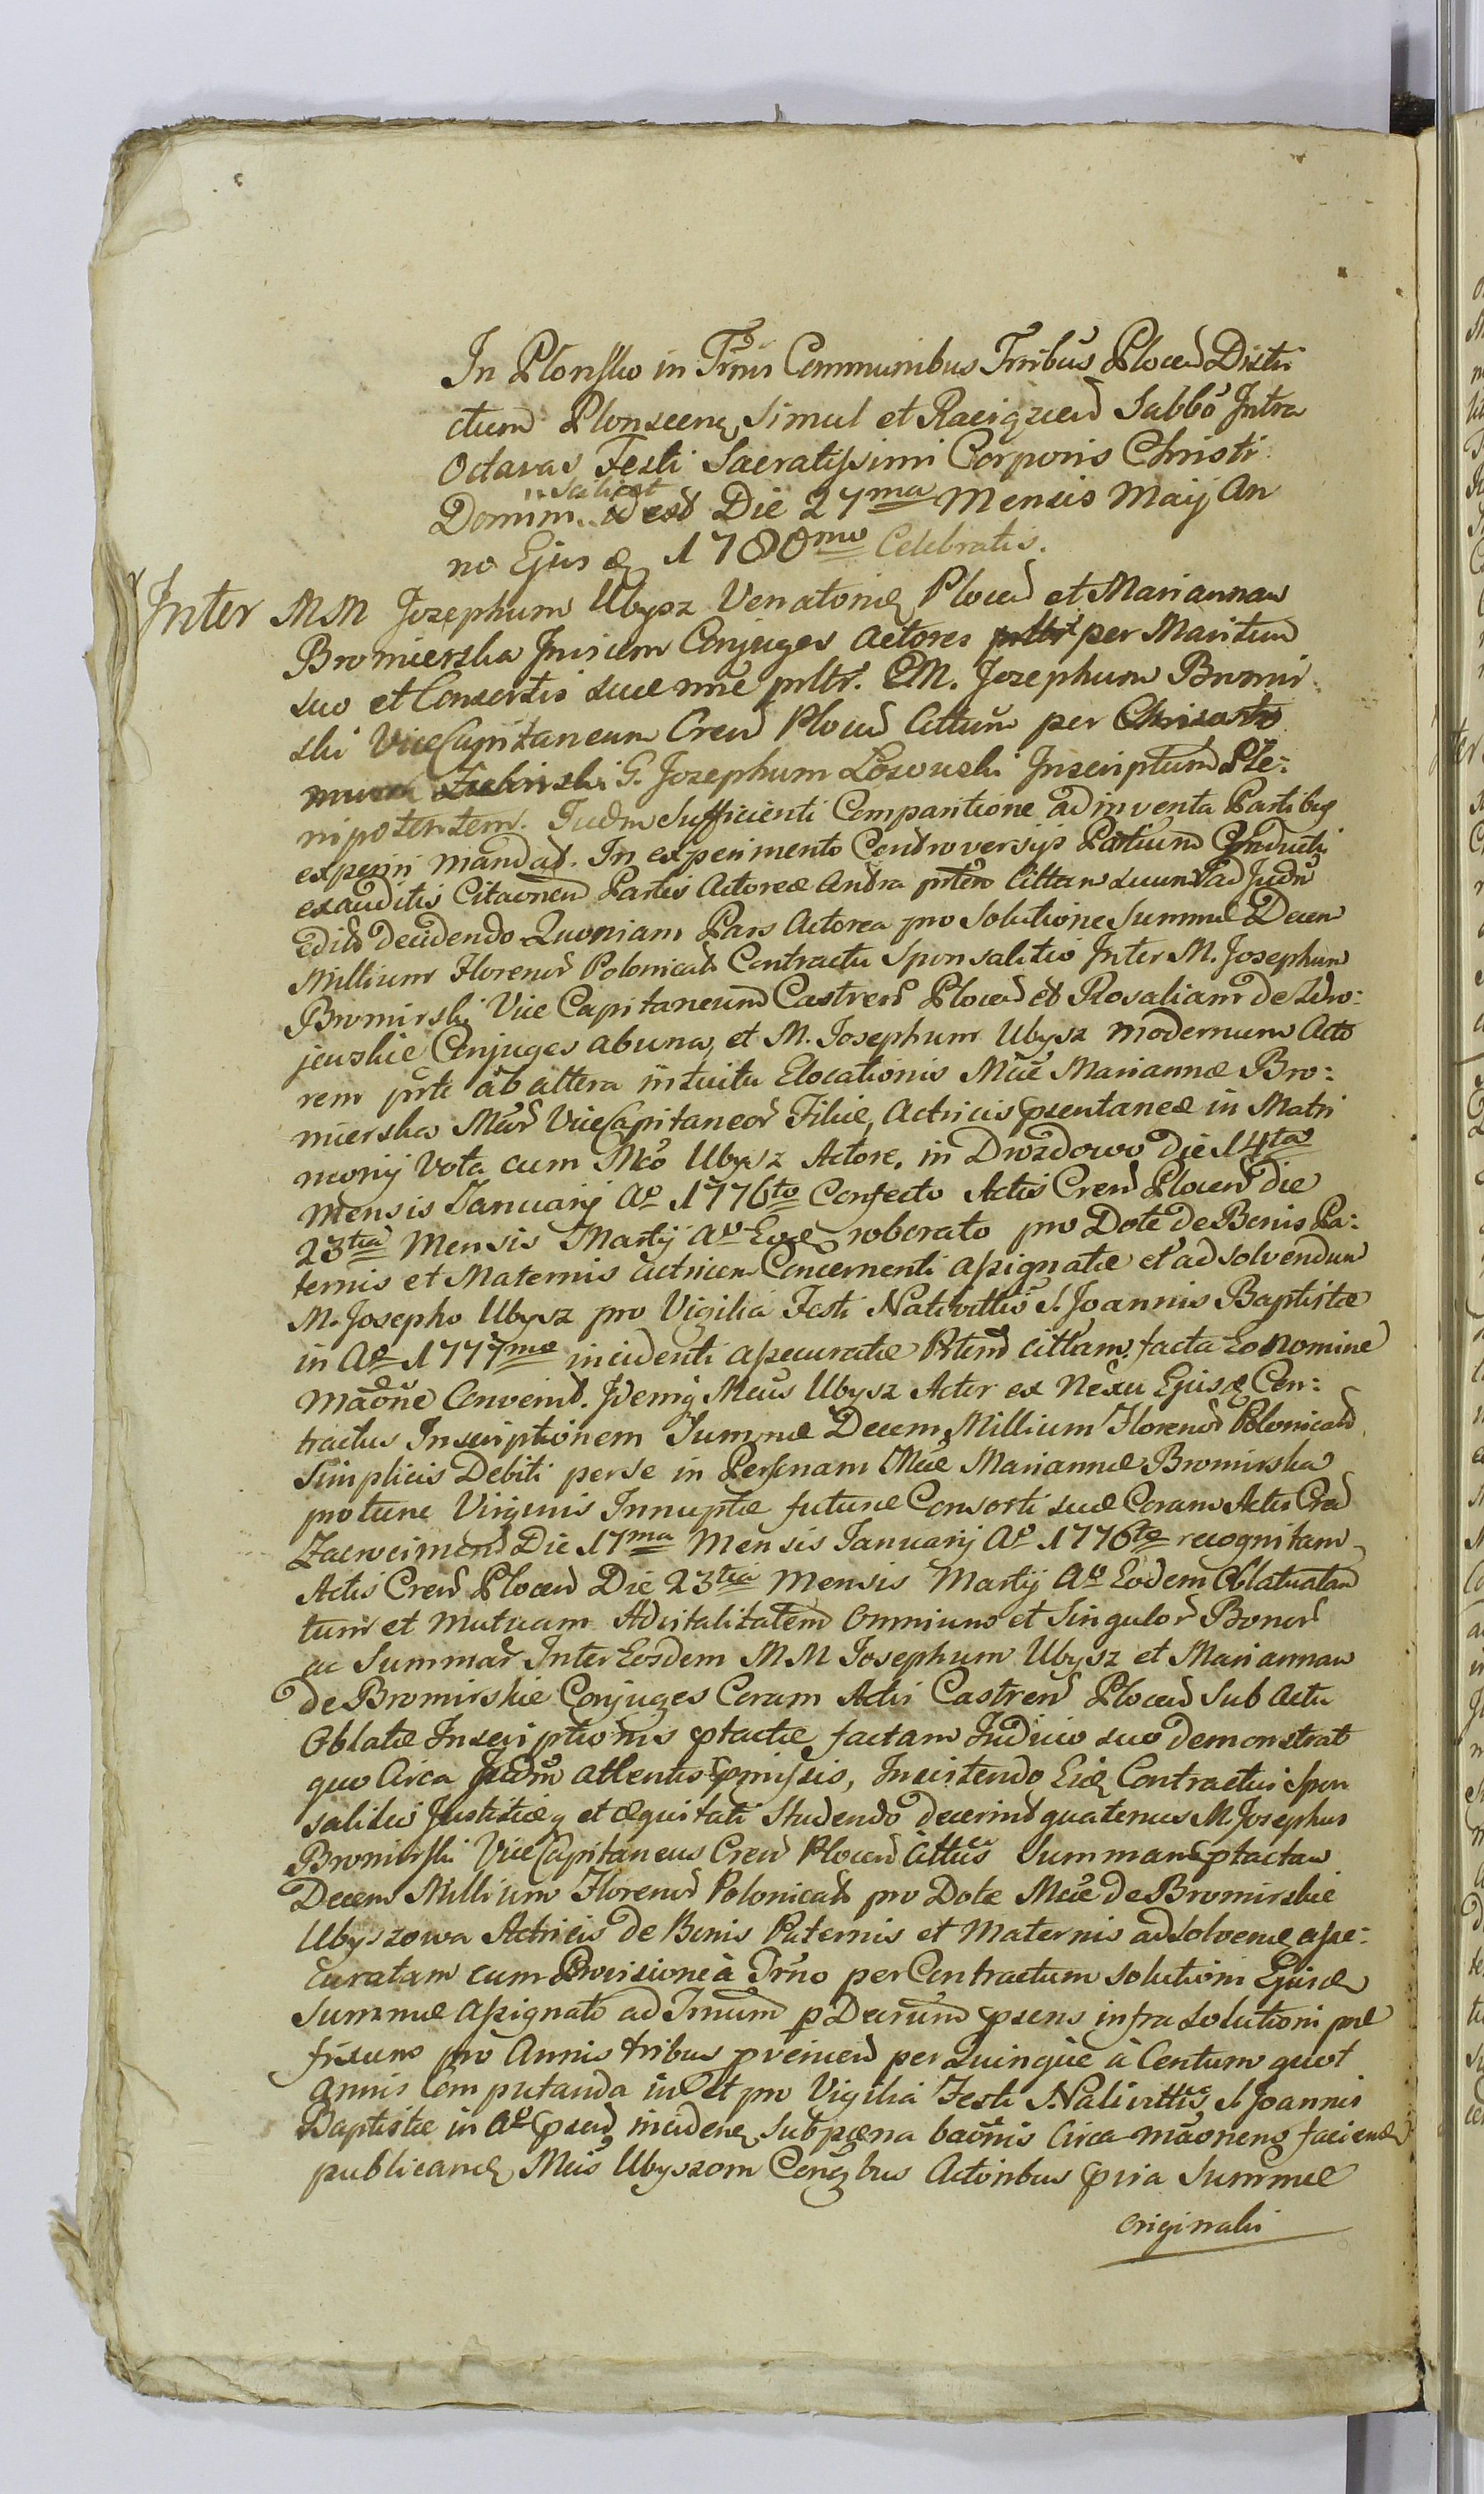 In Plonsko in Trnis Communibus Trribus Plocen Distri
ctum Plonscens simul et Raciązen Sabbo Intra
Octavas Festi Sacratissimi Corporis Christi
scilicet
Domini est Die 27ma Mensis Maij An
no Ejusd 1780mo Celebratis.
Inter MM Jozephum Ubysz Venatorid Plocen et Mariannam
Bromierska Invicem Conjuges Actores per Maritum
suo et Consortis suae nne prltr. M. Jozephum Bromir
ski ViceCapitaneum Cren Plocen Cittum per Chrisosto
mum Zielinski G. Jozephum Lozowski Inscriptum Ple:
nipotentem. Judm Sufficienti Comparitione adinventa Partibus
experiri mandat. In experimento Controversijs Partium
exauditis Citaonem Partis Actoreae Contra prtem Cittam suum ad Judm
edito decidendo Quoniam Pars Actorea pro Solutione Summae Decem
Millium Florenor Polonical Contractu Sponsalitio Inter M. Josephum
Bromirski Vice Capitaneum Castren Plocen et Rosaliam de Zdro:
jewskie Conjuges ab una, et M. Josephum Ubysz modernum Acto
rem prte ab altera intuitu Elocationis Mcae Mariannae Bro:
mierska Mcor ViceCapitaneor Filiae, Actricis psentaneae in Matri
monij Vota cum Mco Ubysz Actore, in Drozdowo Die 14ta
Mensis Januarij Ao 1776to Confecto Actis Cren Plocen die
23tia Mensis Martij Ao Eod roborato pro Dote de Bonis Pa:
ternis et Maternis Actricem Concernenti assignatae et ad solvendum
M. Josepho Ubysz pro Vigilia Festi Nativittis S. Joannis Baptistae
in Ao 1777mo incidenti assecuratae Ptem Cittam facta Eo nomine
maone Convenit. Idemq Mcus Ubysz Actor ex Nexu Ejusd Con:
tractus Inscriptionem Summae Decem Millium Florenor Polonical
Simplicis Debiti per se in Personam Mcae Mariannae Bromirska
protunc Virginis Innuptae futurae Consorti suae Coram Actis Cren
Zacrocimen Die 17ma Mensis Januarij Ao 1776to recognitam
Actis Cren Plocen Die 23tia Mensis Martij Ao Eodem Oblatatam
tum et Mutuam Advitalitatem Omnium et Singulor Bonor
ac Summar Inter Eosdem MM Josephum Ubysz et Mariannam
de Bromirskie Conjuges Coram Actis Castren Plocen Sub Actu
Oblatae Inscriptionis ptactae factam Judicio suo demonstrat
quo Circa Judm attentis pmissis, Insistendo Eid Contractui Spon
salitio Justitiaeq et aequitati Studendo decernit quatenus M. Josephus
Bromirski ViceCapitaneus Cren Plocen Cittus Summam ptactam
Decem Millium Florenor Polonical pro Dote Mcae de Bromirskie
Ubyszowa Actricis de Bonis Paternis et Maternis ad solvend asse:
curatam cum Provisione à Trno per Contractum solutioni Ejusd
Summae assignato ad Trnum p Decrum psens infra solutioni prae
fixum pro Annis tribus pvenien per Quinque à Centum quot
annis Computanda in et pro Vigilia Festi Nativittis S. Joannis
Baptistae in Ao psen inciden sub paena baonis Circa maonem faciend
publicand Mcis Ubyszom Conjgbus Actoribus pvia Summae
originalis